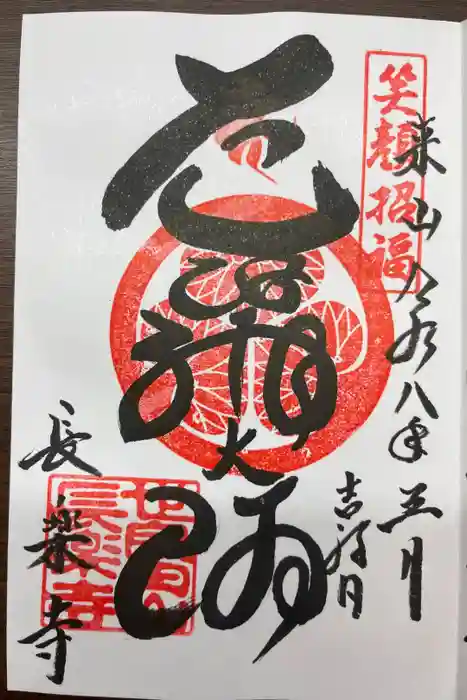 笑顔招福
来山 令和八年 三月
吉祥日
大師
長楽寺
世良田
長楽寺